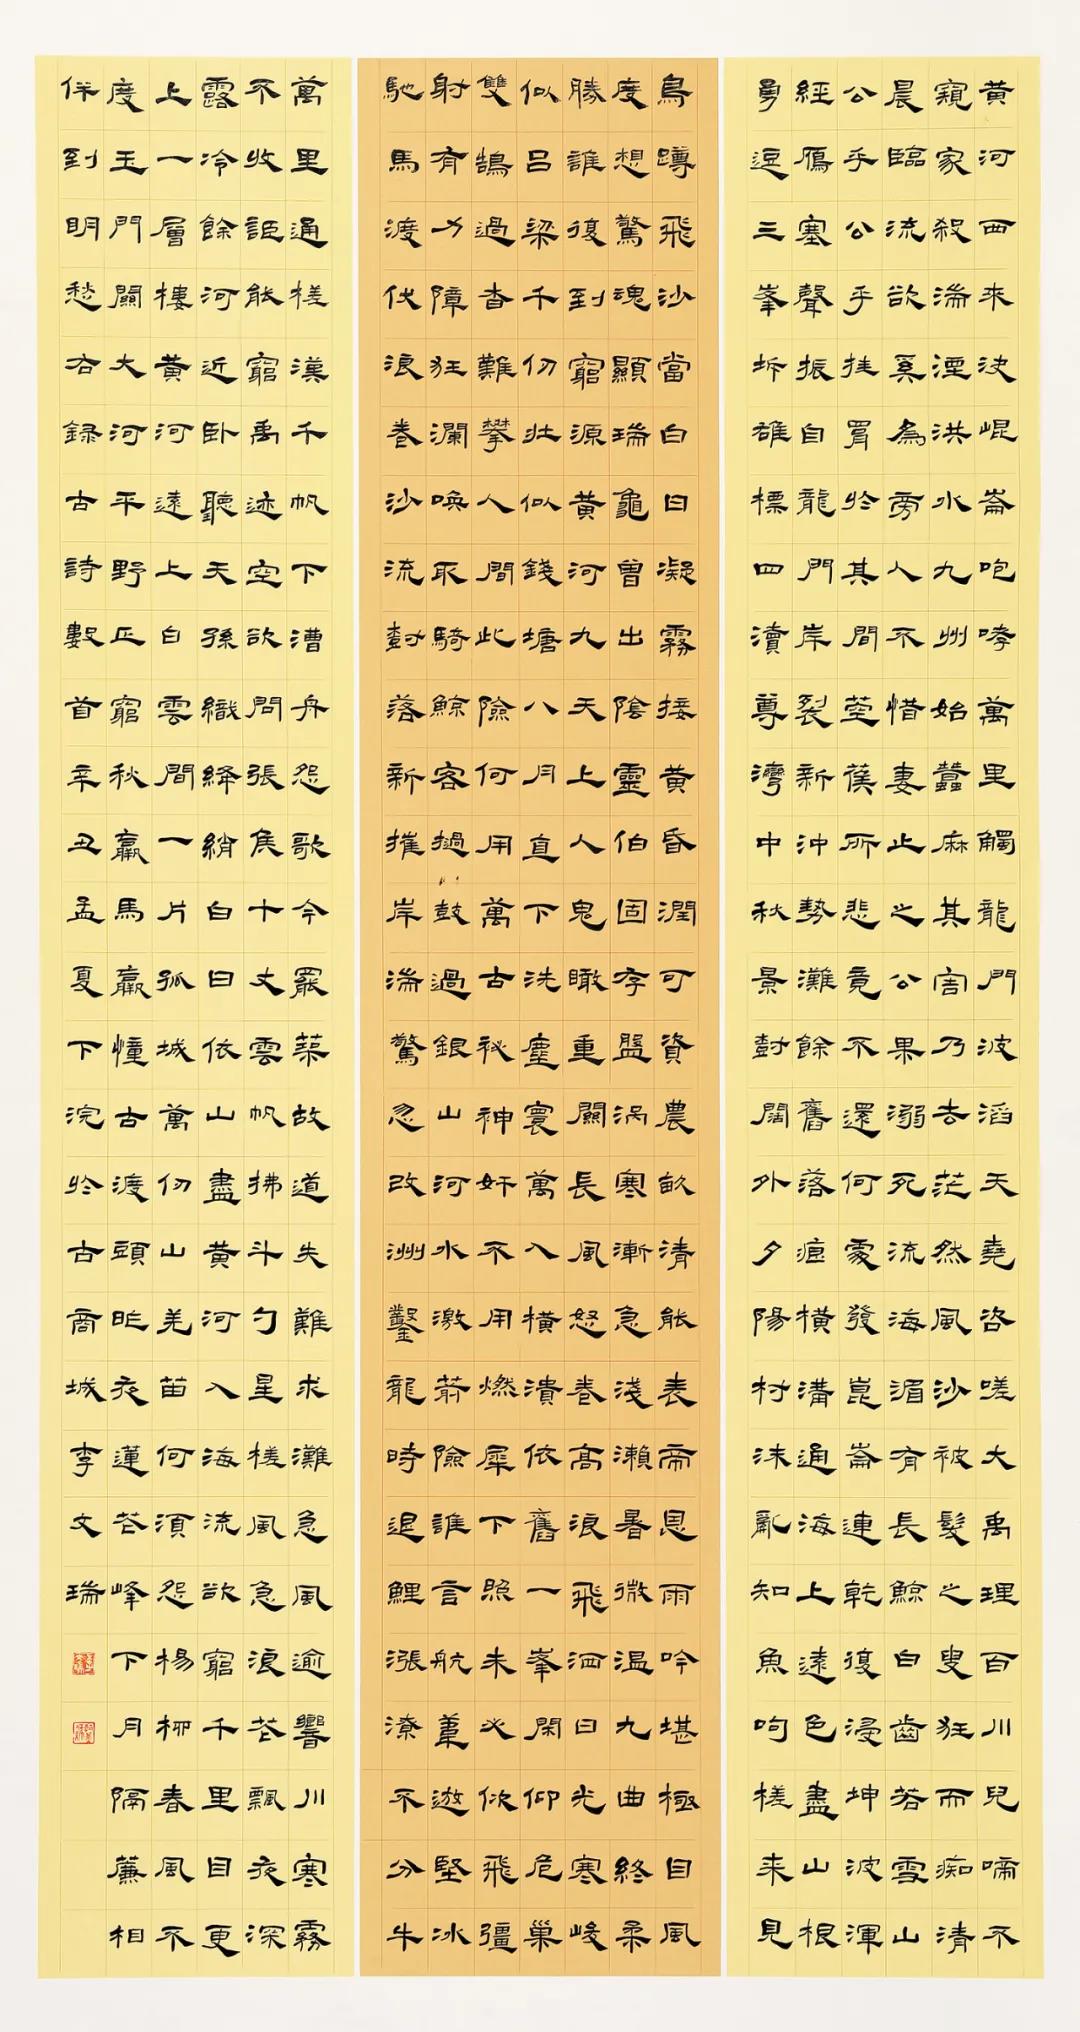 黃河西來決崐崙咆哮萬里觸龍門波滔天堯咨嗟大禹理百川兒啼不
窺家殺湍湮洪水九州始蠶麻其害乃去茫然風沙被髮之叟狂而痴清
晨臨流欲奚為旁人不惜妻止之公果溺死流海湄有長鯨白齒若雪山
公乎公乎挂罥於其間箜篌所悲竟不還何處發崑崙連乾復浸坤波渾
經鴈塞聲振自龍門岸裂新沖勢灘餘舊落痕橫溝通海上遠色盡山根
勇逗三峯坼雄標四瀆尊灣中秋景對闊外夕陽村沫亂知魚呴槎来見
鳥蹲飛沙當白日凝霧接黃昏潤可資農畝清能表帝恩雨吟堪極目風
度想驚魂顯瑞龜曾出陰靈伯固存盤渦寒漸急淺瀨暑微温九曲終柔
勝誰復到窮源黃河九天上人鬼瞰重關長風怒卷高浪飛洒日光寒峻
似呂梁千仞壯似錢塘八月直下洗塵寰萬入橫潰依舊一峯閑仰危巢
雙鵠過杳難攀人間此險何用萬古秘神奸不用燃犀下照未必佽飛彊
射有力障狂瀾喚取騎鯨客撾鼓過銀山河水激箭險誰言航葦遊堅冰
馳馬渡伏浪卷沙流對落新摧岸湍驚忽改洲鑿龍時退鯉漲潦不分牛
萬里通槎漢千帆下漕舟怨歌今罷築故道失難求灘急風逾響川寒霧
不收詎能窮禹迹空欲問張侯十丈雲帆拂斗勺星槎風急浪花飄夜深
露冷餘河近卧聽天孫織絳綃白日依山盡黃河入海流欲窮千里目更
上一層樓黃河遠上白雲間一片孤城萬仞山羌笛何須怨楊柳春風不
度玉門關大河平野正窮秋羸馬羸憧古渡頭昨夜蓮花峰下月隔簾相
伴到明愁右録古詩數首辛丑孟夏下浣於古商城李文瑞